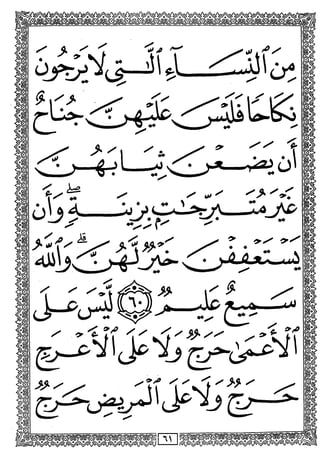 مِنَ ٱلنِّسَآءِ ٱلَّـٰتِى لَا يَرْجُونَ
نِكَاحًا فَلَيْسَ عَلَيْهِنَّ جُنَاحٌ
أَن يَضَعْنَ ثِيَابَهُنَّ
غَيْرَ مُتَبَرِّجَـٰتٍۭ بِزِينَةٍۖ وَأَن
يَسْتَعْفِفْنَ خَيْرٌ لَّهُنَّۗ وَٱللَّهُ
سَمِيعٌ عَلِيمٌ ٦٠ لَّيْسَ عَلَى
ٱلْأَعْمَىٰ حَرَجٌ وَلَا عَلَى ٱلْأَعْرَجِ
حَرَجٌ وَلَا عَلَى ٱلْمَرِيضِ حَرَجٌ
٦١